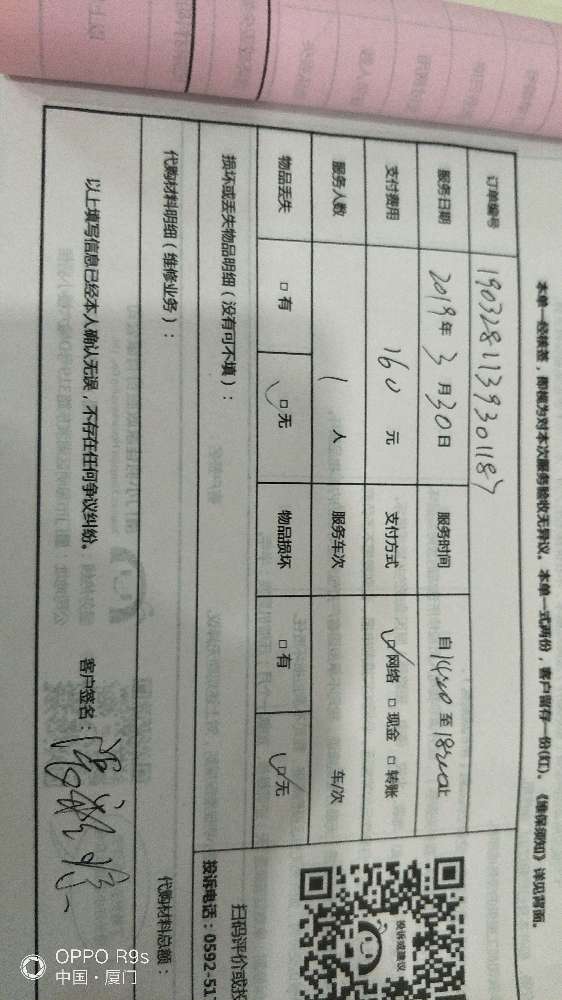 本单一经核签，即视为对本次服务验收无异议。本单一式两份，客户留存一份(红)。《维保须知》详见背面。
订单编号 190328113930118
服务日期 2019年 3月 30日 服务时间 自14:00 至18:00止
支付费用 160 元 支付方式 □网络 □现金 □转账
服务人数 1 人 服务车次 车/次
物品丢失 □有 □无 物品损坏 □有 □无
损坏或丢失物品明细（没有可不填）：
代购材料明细（维修业务）：
代购材料总额：
以上填写信息已经本人确认无误，不存在任何争议纠纷。
客户签名：
投诉或建议
扫码评价或投
投诉电话：0592-51
OPPO R9s
中国·厦门